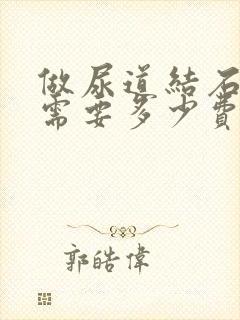 做尿道結石
需要多少費
郭皓偉